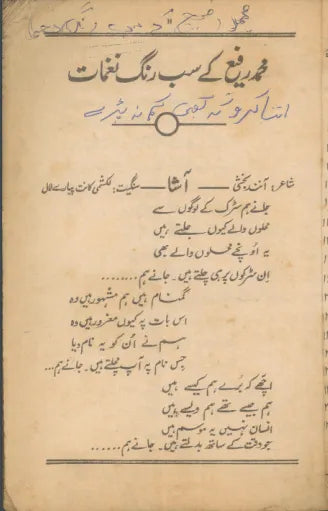 محمد رفیع کے سب رنگ نغمات
شاعر: آنند بخشی — آشا — سنگیت: لکشمی کانت پیارے لال
جانے ہم سڑک کے لوگوں سے
محلوں والے کیوں جلتے ہیں
یہ اونچے محلوں والے بھی
اِن سڑکوں پر ہی چلتے ہیں۔ جانے ہم........
گمنام ہیں ہم مشہور ہیں وہ
اس بات پہ کیوں مغرور ہیں وہ
ہم نے اُن کو یہ نام دیا
جس نام پہ آپ چلتے ہیں۔ جانے ہم...
اچھے کہ بُرے ہم کیسے ہیں
ہم جیسے تھے ہم ویسے ہیں
انسان نہیں یہ موسم ہیں
جو وقت کے ساتھ بدلتے ہیں۔ جانے ہم......